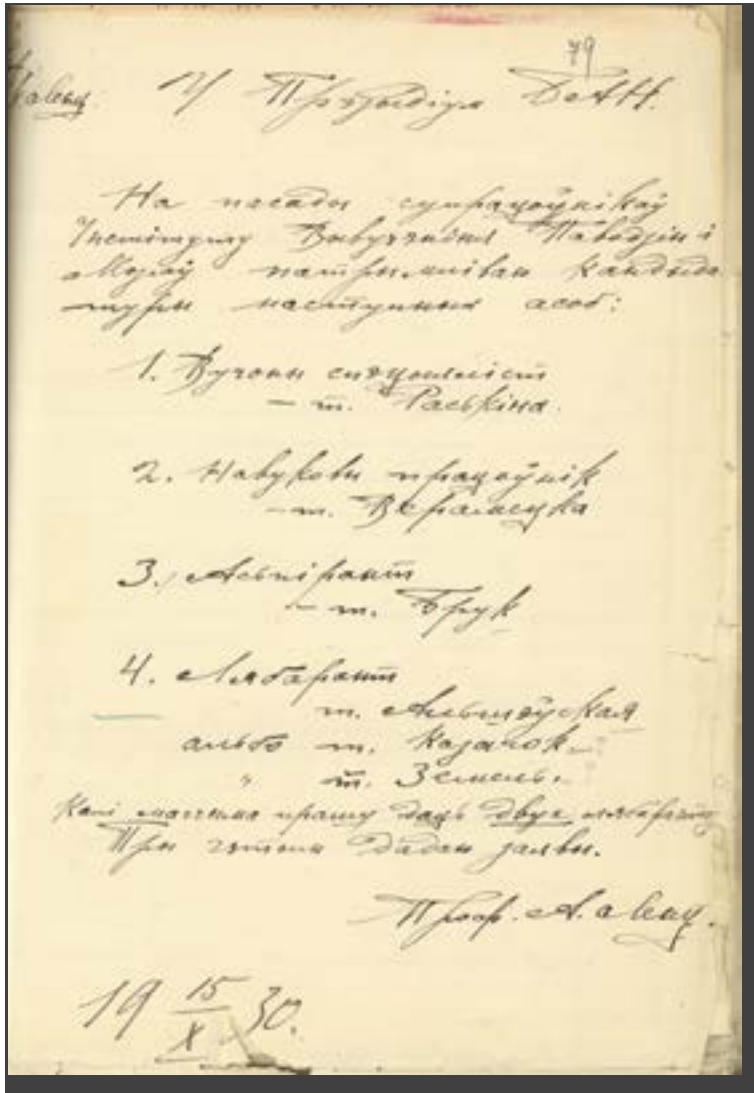 79
У Прэзыдіум БелАН.
На пасады супрацоўнікаў
Інстытуту Вывучэньня Паводзін і
Мозгу патрымліваю кандыда
туры наступных асоб:
1. Вучоны спэцыяліст
— т. Раськіна.
2. Навуковы працоўнік
— т. Верамецка
3. Асьпірант
— т. Брук
4. Лябарант
т. Альшэўская
альбо т. Казачок.
" т. Земель.
Калі магчыма прашу даць двух лябарант
Пры гэтым дадаю заявы.
Проф. А.
19 15/X 30.